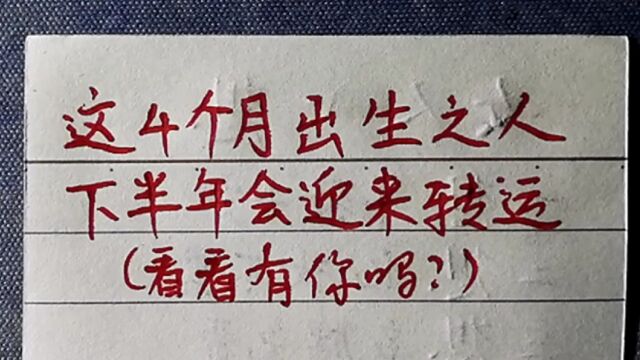 这4个月出生之人
下半年会迎来转运
(看看有你吗?)